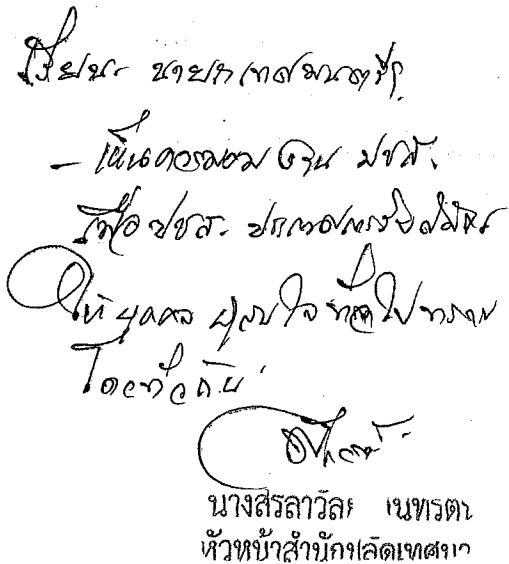 เรียน นายกเทศมนตรี
- เห็นควรมอบ งาน ปชส.
เพื่อ ปชส. ประกาศ
ให้ บุคคล ผู้สนใจ ทั่วไป ทราบ
โดยทั่วกัน
นางสิรลาวัลย์
หัวหน้าสำนักปลัดเทศบาล